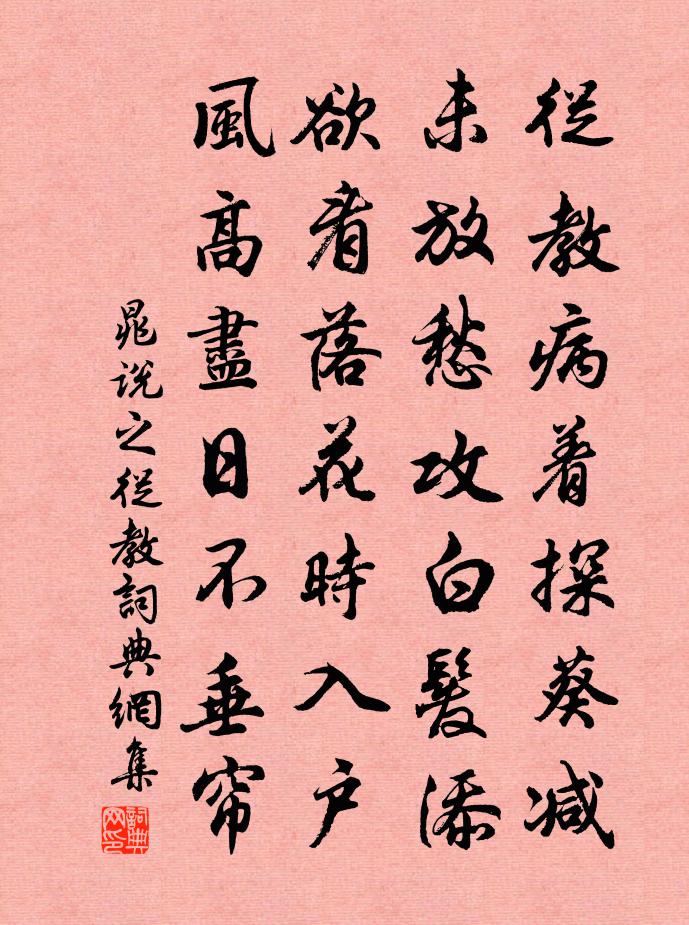 從教病着探葵減
未放愁攻白髮添
欲看落花時入户
風高盡日不垂帘
晁説之從教詞典網集
詞典网印